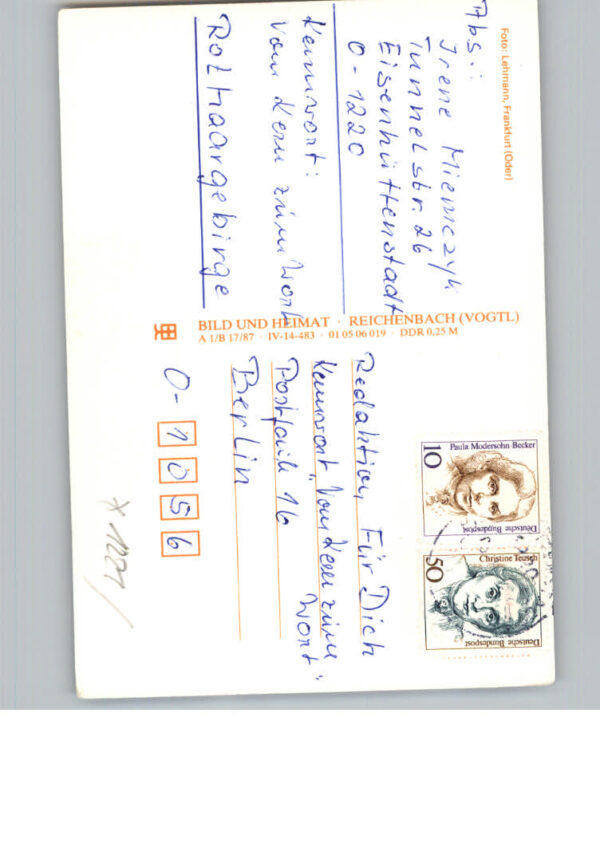 Foto: Lehmann, Frankfurt (Oder)
Abs.:
Irene Miemczyk
Tunnelstr. 26
Eisenhüttenstadt
0-1220
Kennwort:
Vom Kern zum Wort
Rothaargebirge
BILD UND HEIMAT · REICHENBACH (VOGTL)
A 1/B 17/87 · IV-14-483 · 01 05 06 019 · DDR 0,25 M
Redaktion Für Dich
Kennwort "Vom Kern zum
Wort"
Postfach 16
Berlin
0-1056
Paula Modersohn-Becker
10
Deutsche Bundespost
Christine Teusch
50
Deutsche Bundespost